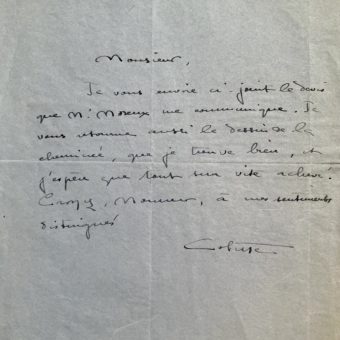 Monsieur,
Je vous envoie ci-joint le devis
que Mr me communique. Je
vous retourne aussi le dessin de la
cheminée, que je trouve bien, et
j'espère que tout sera vite achevé.
Croyez, Monsieur, à mes sentiments
distingués